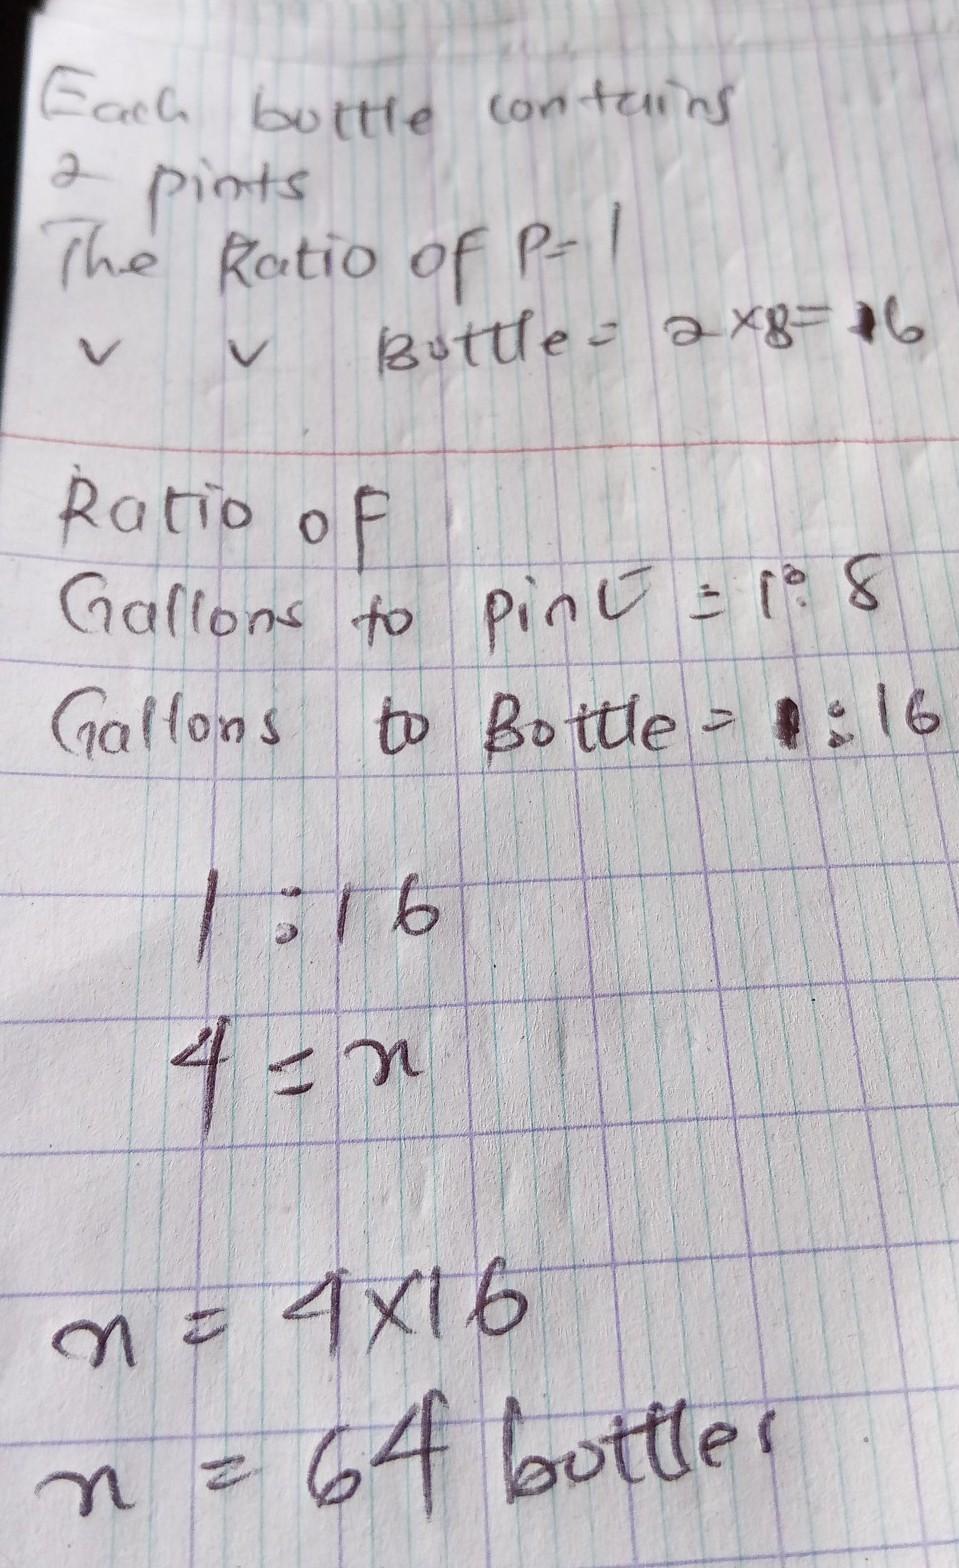 Each bottle contains
2 pints
The Ratio of P=1
v v Bottle = 2×8=16
Ratio of
Gallons to pint = 1:8
Gallons to Bottle = 1:16
1:16
4 = n
n = 4×16
n = 64 bottles